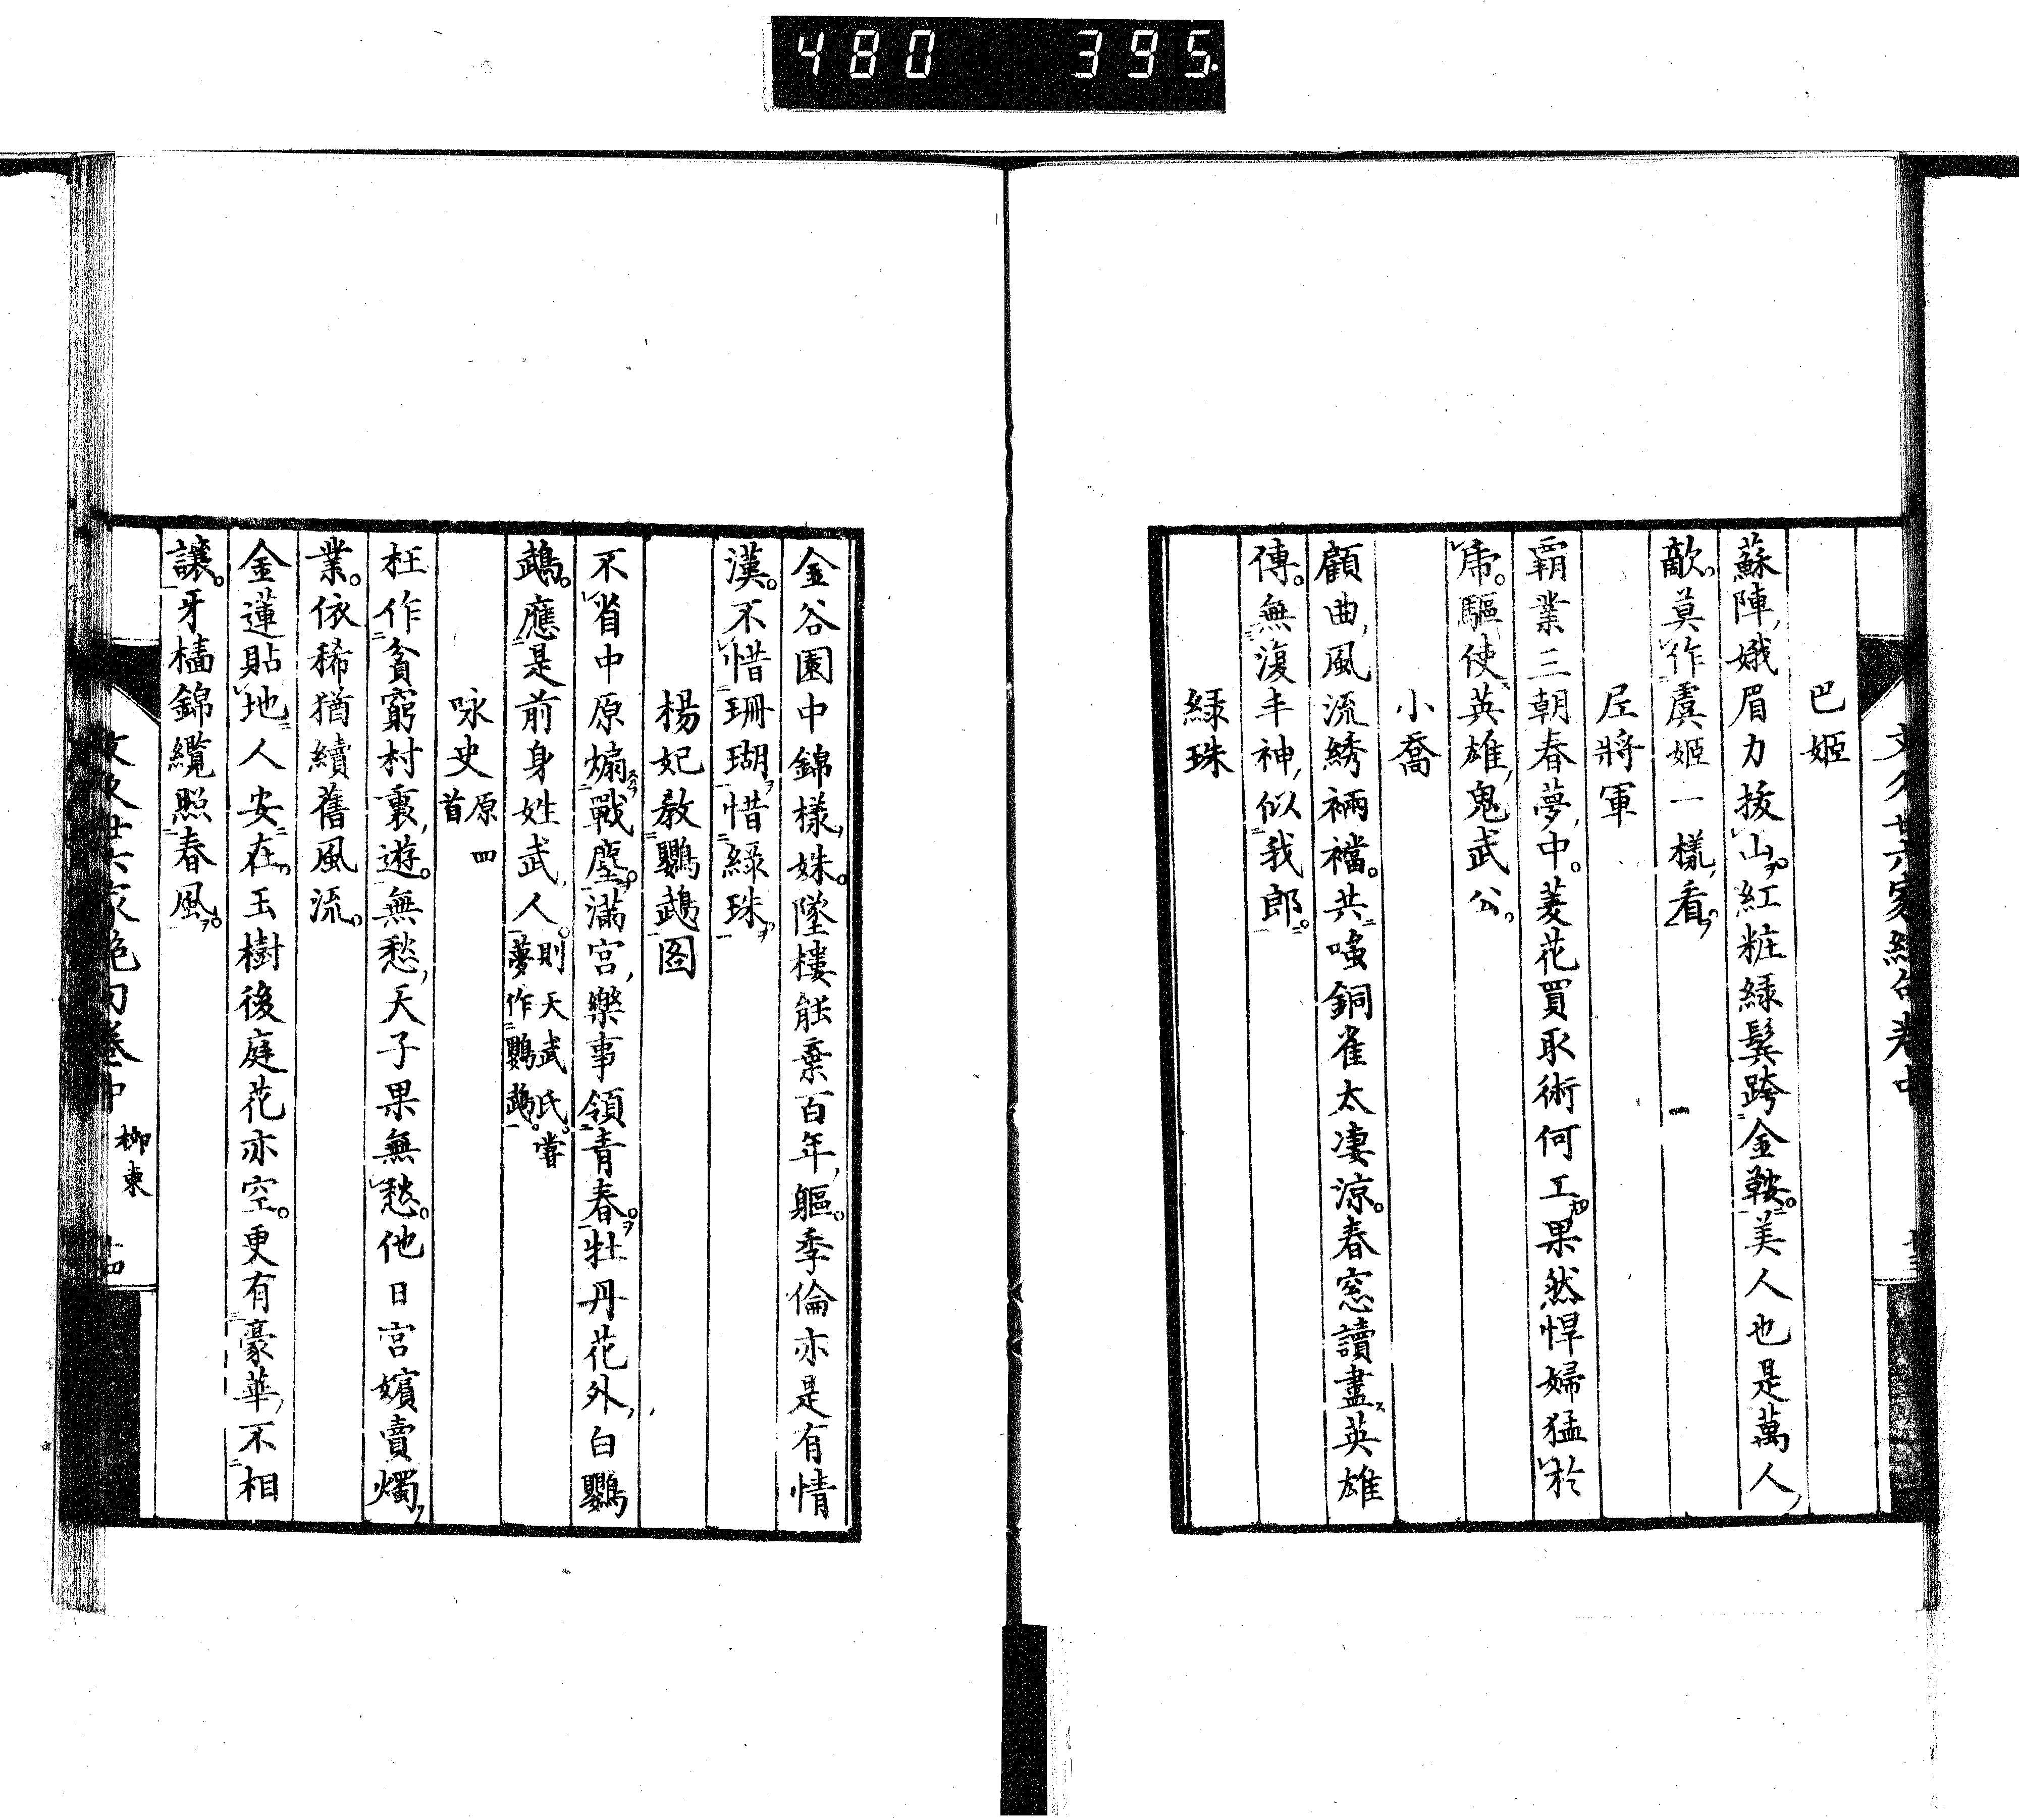 480 395.
巴姬
蘇陣娥眉力拔山紅粧緑鬢跨金鞍美人也是萬人
敵莫作虞姬一樣看
尼將軍
覇業三朝春夢中菱花買取術何工果然悍婦猛於
虎驅使英雄鬼武公
小喬
顧曲風流綉裲襠共嗤銅雀太凄涼春窓讀盡英雄
傳無復丰神似我郎
緑珠
金谷園中錦樣姝墜樓能棄百年軀季倫亦是有情
漢不惜珊瑚惜緑珠
楊妃教鸚鵡図
不省中原煽戰塵滿宮樂事領青春牡丹花外白鸚
鵡應是前身姓武人則天武氏嘗夢作鸚鵡
咏史原四首
枉作貧窮村裏遊無愁天子果無愁他日宮嬪賣燭
業依稀猶續舊風流
金蓮貼地人安在玉樹後庭花亦空更有豪華不相
讓牙檣錦纜照春風
家絶句卷中 柳東